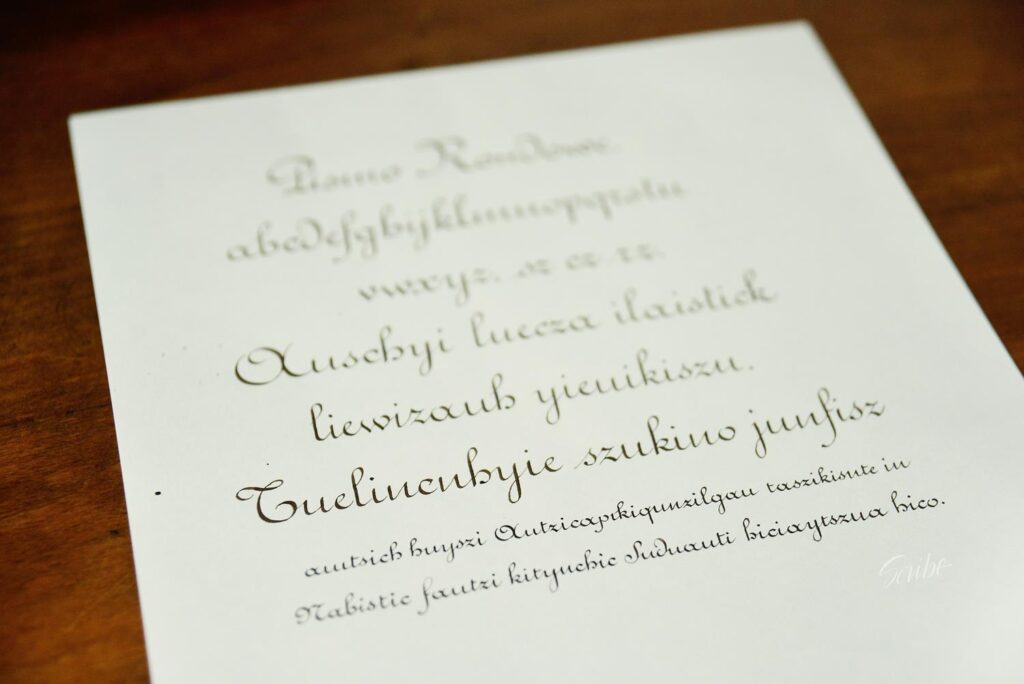 Pismo Rondowe.
abcdefghijklmnopqrstu
vwxyz. sz cz rz.
Auschyi luecza ilaistick
liewizauh yienikiszu.
Tuelincnhyie szukino junfisz
amtsich huyszi Autzicapikiqunzilgau taszikisnte in
Nabistic fautzi kitynchic Suduauti hiciaytszua hico.
Scribe